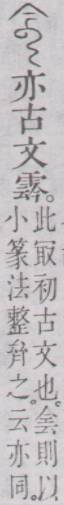 亦古文霒。
此冣初古文也。侌則以
小篆法整齊之。云亦同。